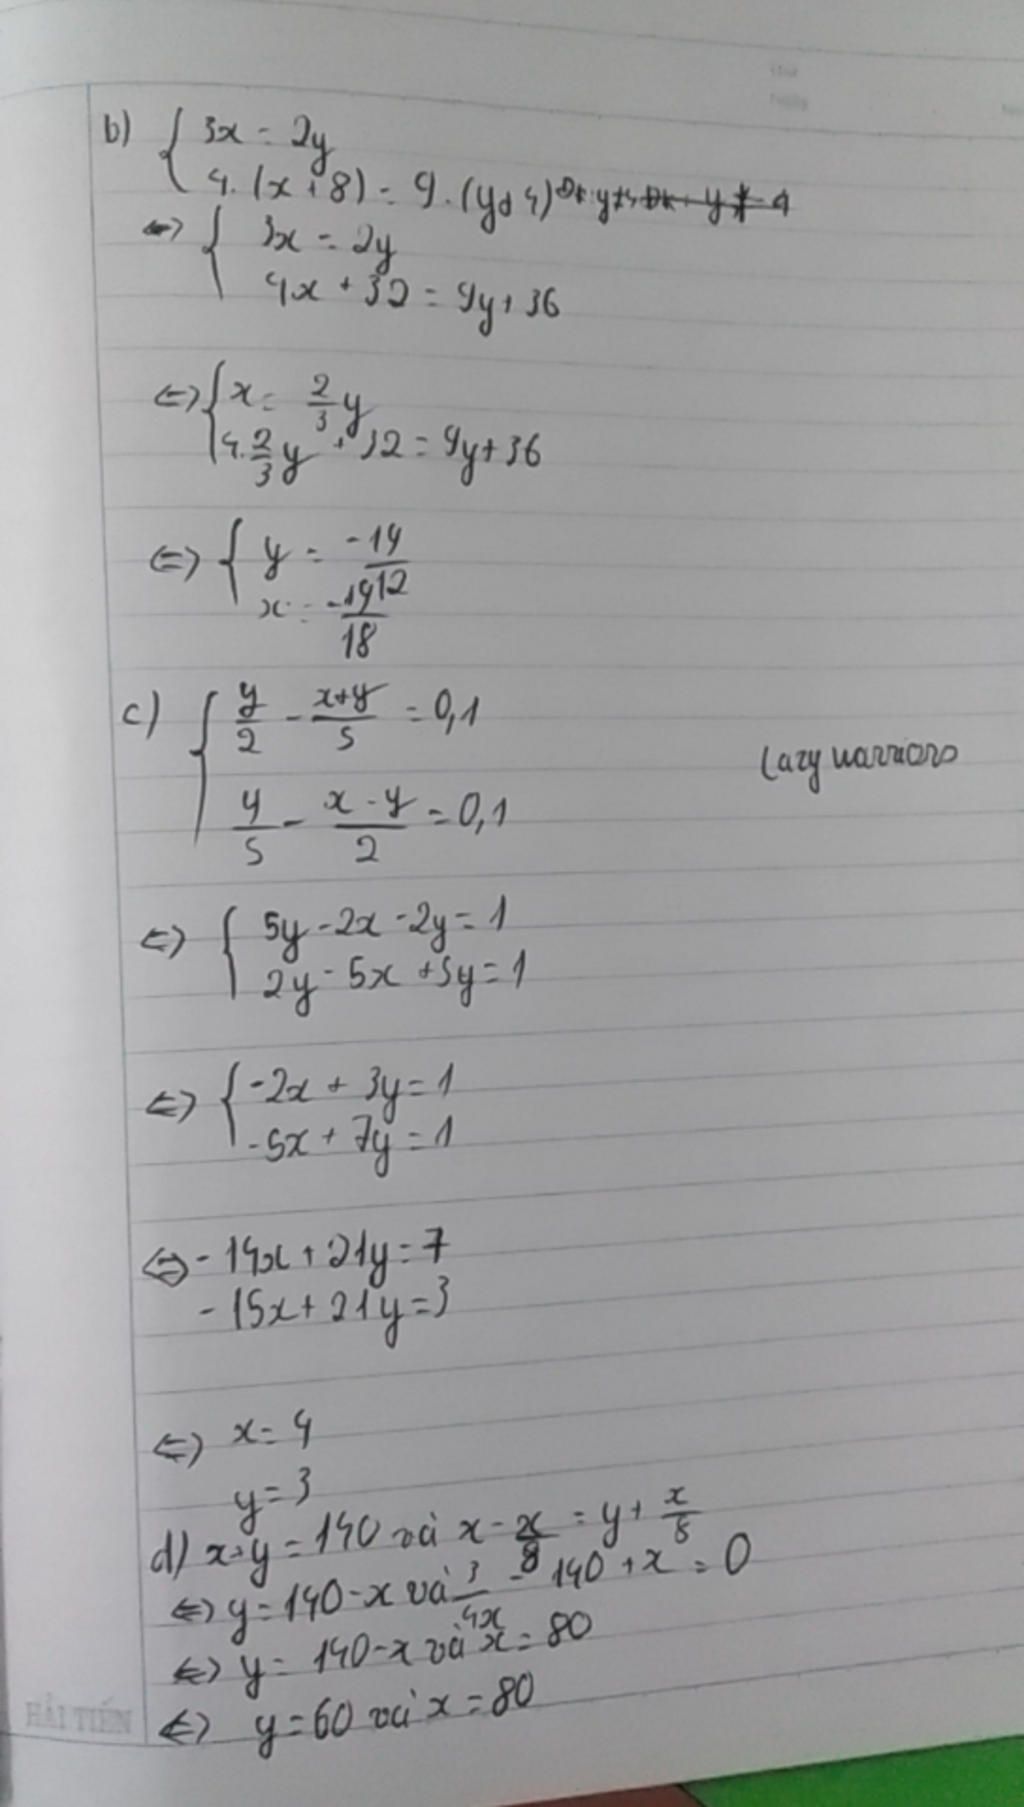 b) { 3x = 2y
4.(x+8) = 9.(y+4)
<=> { 3x = 2y
4x + 32 = 9y + 36
<=> { x = 2/3 y
4.2/3 y + 32 = 9y + 36
<=> { y = -19/12
x = -19/18
c) { y/2 - x+y/5 = 0,1
y/5 - x-y/2 = 0,1
Lazy warriors
<=> { 5y - 2x - 2y = 1
2y - 5x + 5y = 1
<=> { -2x + 3y = 1
-5x + 7y = 1
<=> -14x + 21y = 7
-15x + 21y = 3
<=> x = 4
y = 3
d) x+y = 140 và x - x/8 = y + x/8
<=> y = 140 - x và 3/4x - 140 + x = 0
<=> y = 140 - x và x = 80
<=> y = 60 và x = 80
HẢI TIẾN